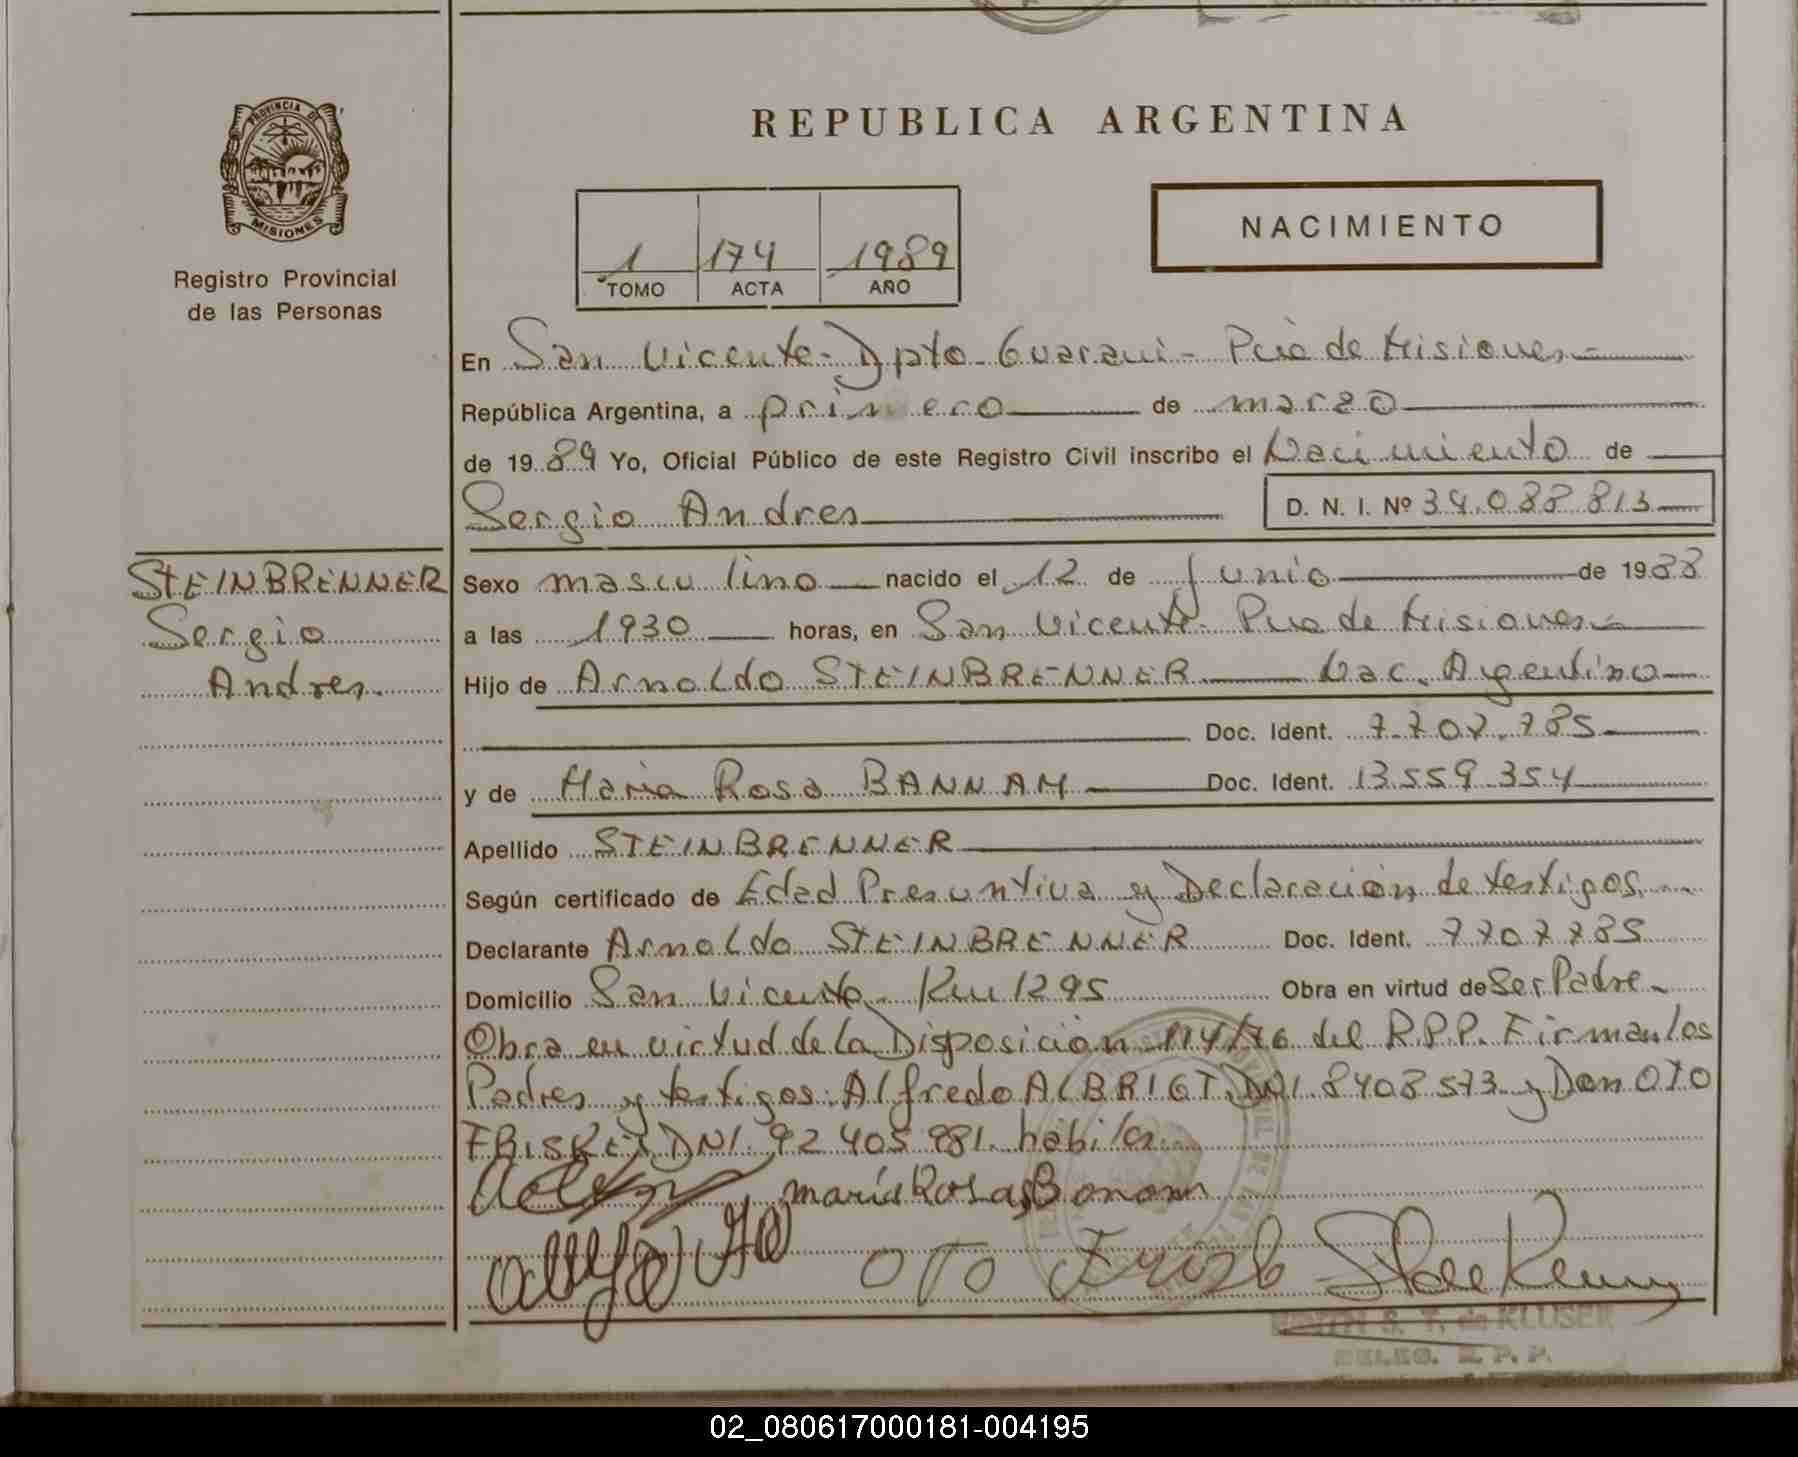 PROVINCIA DE
MISIONES
Registro Provincial
de las Personas
REPUBLICA ARGENTINA
NACIMIENTO
1 174 1989
TOMO ACTA AÑO
En San Vicente - Dpto - Guarani - Pcia de Misiones
República Argentina, a primero de marzo
de 1989 Yo, Oficial Público de este Registro Civil inscribo el Nacimiento de
Sergio Andres D. N. I. Nº 34.088.813
STEINBRENNER
Sergio
Andres.
Sexo masculino nacido el 12 de Junio de 1988
a las 1930 horas, en San Vicente - Pcia de Misiones
Hijo de Arnoldo STEINBRENNER Nac. Argentino
Doc. Ident. 7.707.785
y de Maria Rosa BANNAM Doc. Ident. 13.559.354
Apellido STEINBRENNER
Según certificado de Edad Presuntiva y Declaración de testigos.
Declarante Arnoldo STEINBRENNER Doc. Ident. 7707785
Domicilio San Vicente - Km 1295 Obra en virtud de Ser Padre
Obra en virtud de la Disposición 114/76 del R.P.P. Firman los
Padres y testigos: Alfredo ALBRIGT DNI. 8408573 y Don OTO
DNI. 92 405 981. habiles
maria Rosa Bonam
OTO
S. T. de KLUSER
DELEG. R. P. P.
02_080617000181-004195